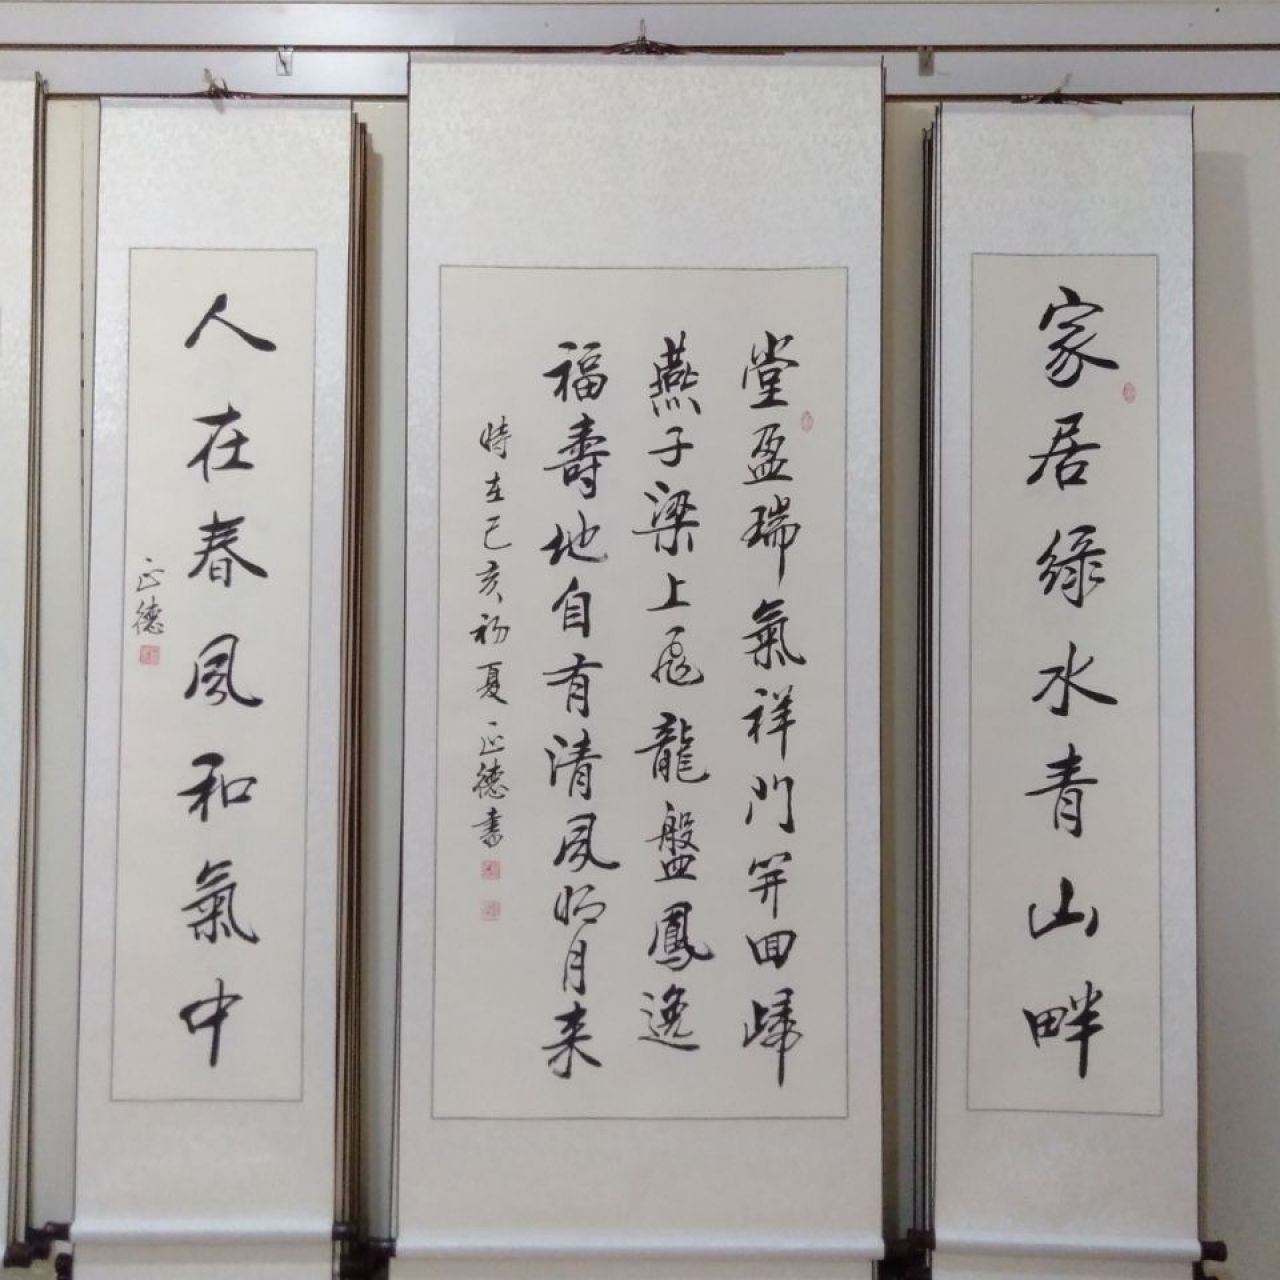 家居綠水青山畔
堂盈瑞氣祥門开回歸
燕子梁上飛龍盤鳳逸
福壽地自有清風明月来
時在己亥初夏正德書
人在春風和氣中
正德